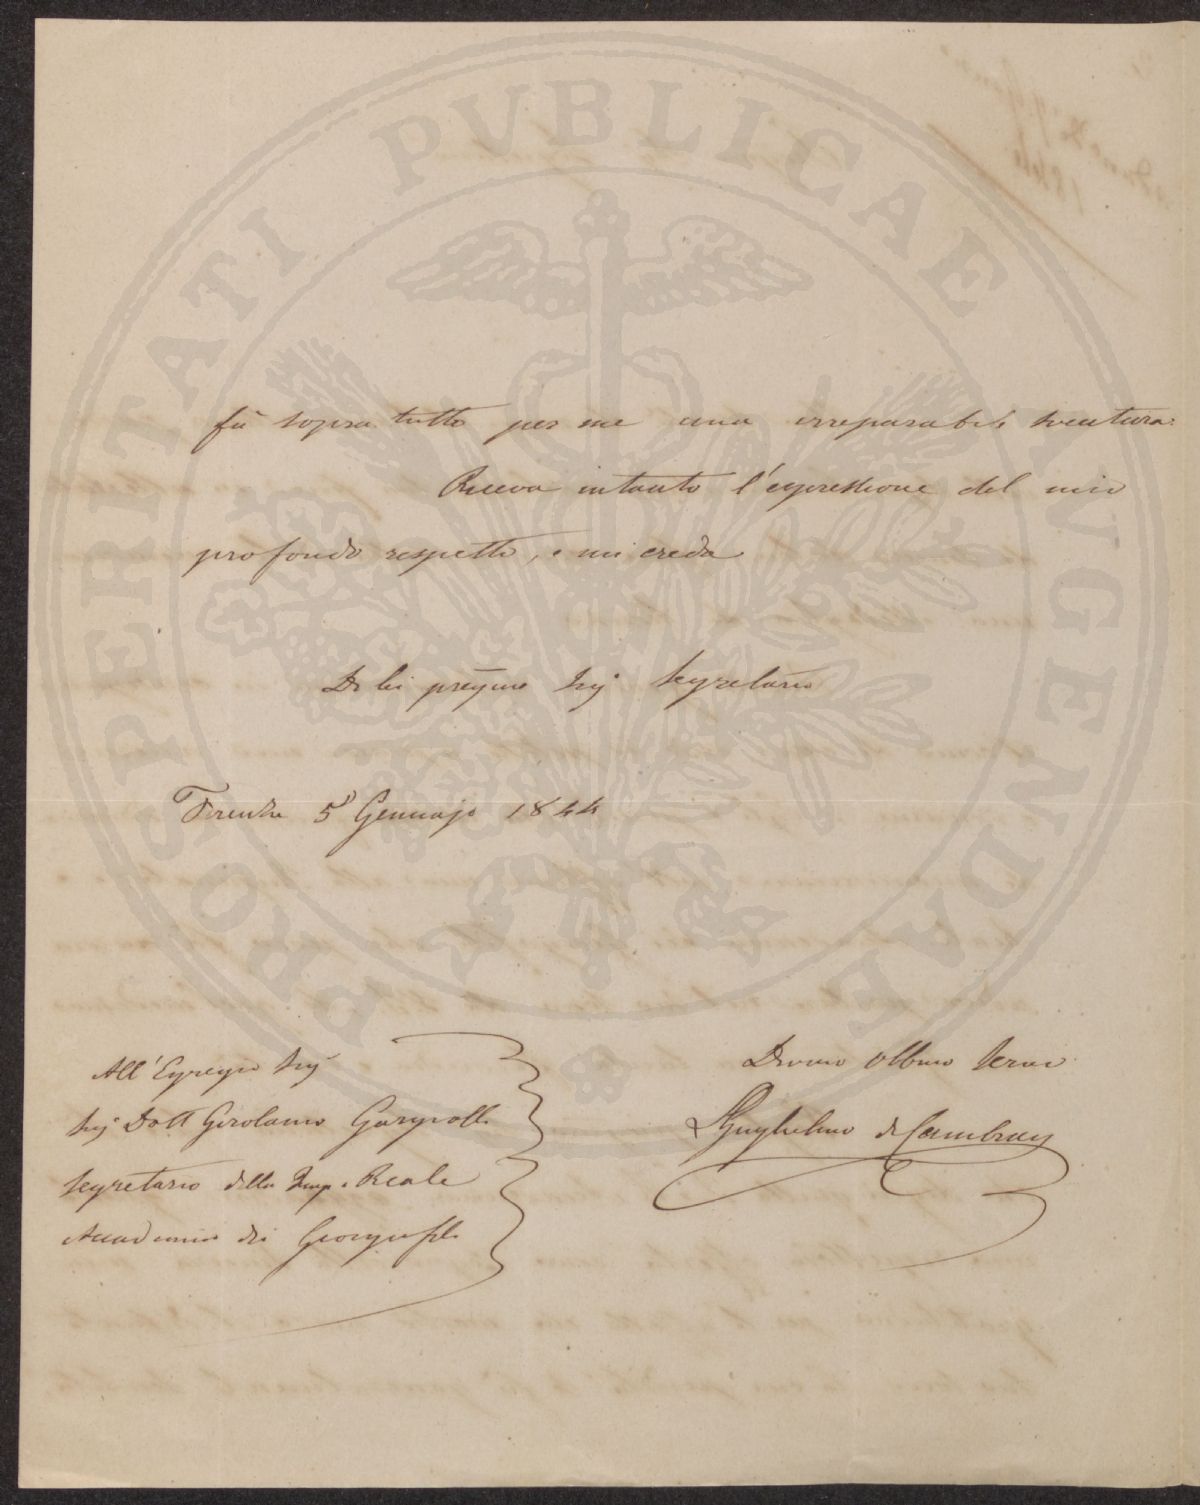 PROSPERITATI PUBLICAE AUGENDAE
fù sopra tutto per me una irreparabile sventura.
Riceva intanto l'espressione del mio
profondo respetto, e mi creda
Di lei pregmo Sig Segretario
Firenze 5 Gennajo 1844
All'Egregio Sig
Sig Dott Girolamo Gargiolli
Segretario della Imp. e Reale
Accademia dei Georgofili
Devmo Obbmo Servo
Guglielmo de Cambray